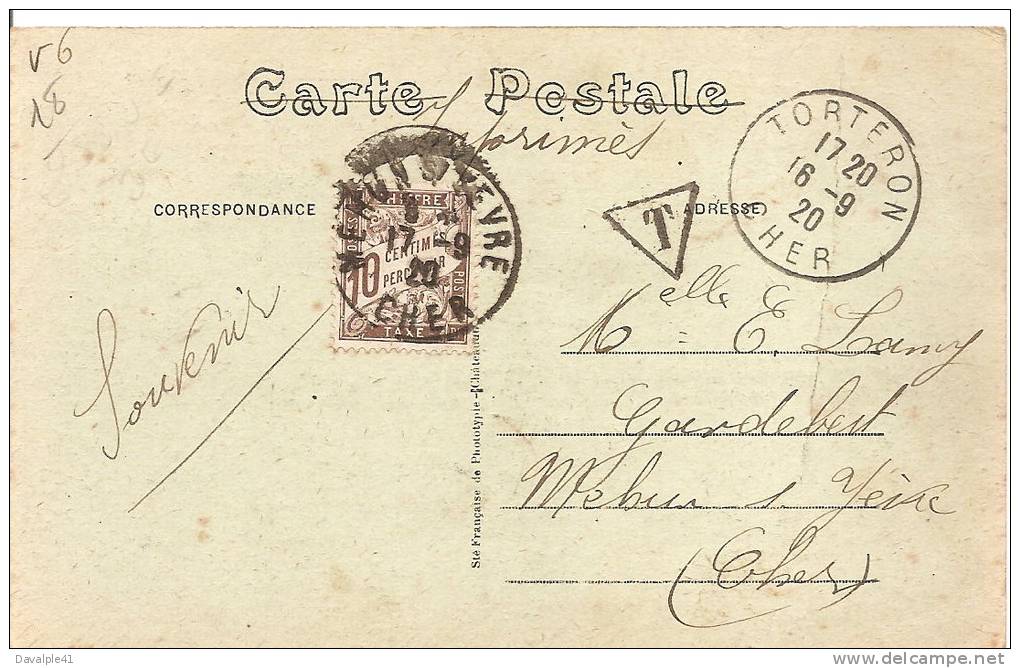 V6
18
Carte Postale
Imprimés
TORTERON
17 20
16 -9
20
CHER
CORRESPONDANCE
T
ADRESSE
MEHUN S YEVRE
17 -9
20
CHER
CHIFFRE
10
CENTIMES
PERCEVOIR
TAXE
POSTES
Souvenir
Melle E. Lamy
Gardebest
Mehun s Yèvre
(Cher)
Sté Française de Phototypie - Châteaudun
Davalple41
www.delcampe.net